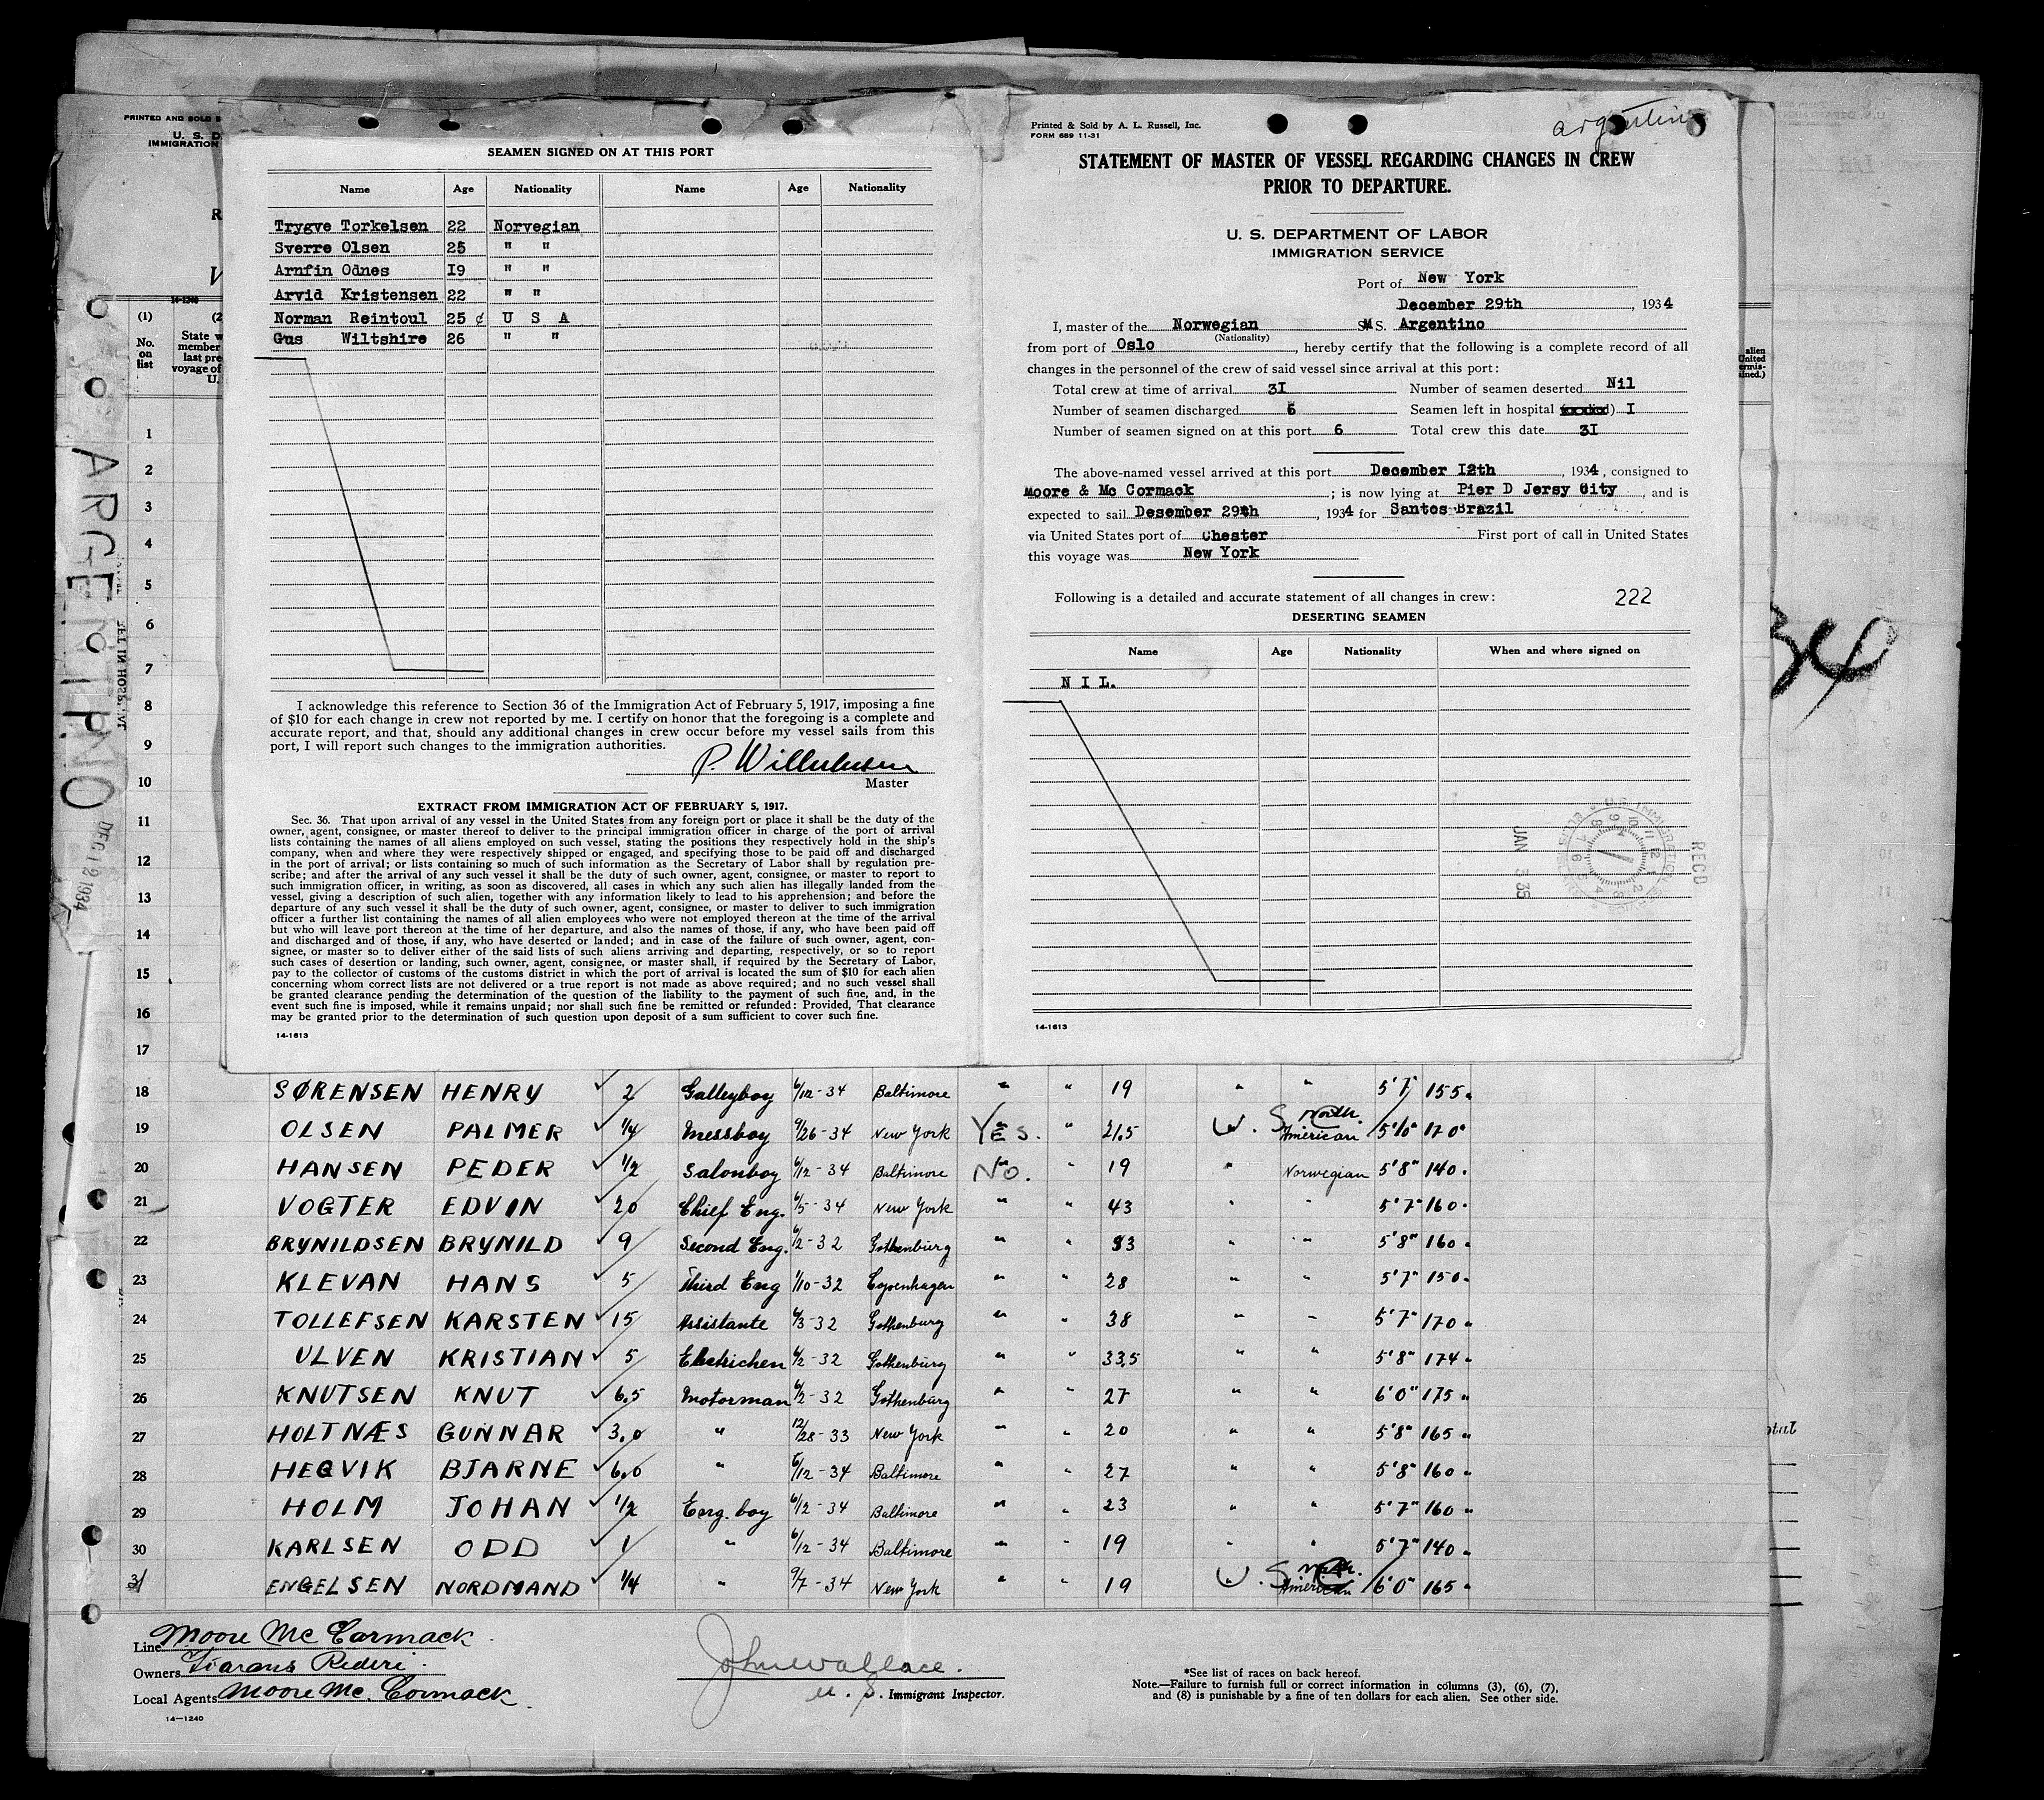 PRINTED AND SOLD B
U. S. D
IMMIGRATION
R
V
14-1240
(1)
No.
on
list
(2
State w
member
last pre
voyage of
U.
ARGENTINO
DEC 12 1934
SEAMEN SIGNED ON AT THIS PORT
Name Age Nationality Name Age Nationality
Trygve Torkelsen 22 Norvegian
Sverre Olsen 25 " "
Arnfin Odnes I9 " "
Arvid Kristensen 22 " "
Norman Reintoul 25 ¢ U S A
Gus Wiltshire 26 " "
I acknowledge this reference to Section 36 of the Immigration Act of February 5, 1917, imposing a fine
of $10 for each change in crew not reported by me. I certify on honor that the foregoing is a complete and
accurate report, and that, should any additional changes in crew occur before my vessel sails from this
port, I will report such changes to the immigration authorities.
Master
EXTRACT FROM IMMIGRATION ACT OF FEBRUARY 5, 1917.
Sec. 36. That upon arrival of any vessel in the United States from any foreign port or place it shall be the duty of the
owner, agent, consignee, or master thereof to deliver to the principal immigration officer in charge of the port of arrival
lists containing the names of all aliens employed on such vessel, stating the positions they respectively hold in the ship's
company, when and where they were respectively shipped or engaged, and specifying those to be paid off and discharged
in the port of arrival; or lists containing so much of such information as the Secretary of Labor shall by regulation pre-
scribe; and after the arrival of any such vessel it shall be the duty of such owner, agent, consignee, or master to report to
such immigration officer, in writing, as soon as discovered, all cases in which any such alien has illegally landed from the
vessel, giving a description of such alien, together with any information likely to lead to his apprehension; and before the
departure of any such vessel it shall be the duty of such owner, agent, consignee, or master to deliver to such immigration
officer a further list containing the names of all alien employees who were not employed thereon at the time of the arrival
but who will leave port thereon at the time of her departure, and also the names of those, if any, who have been paid off
and discharged and of those, if any, who have deserted or landed; and in case of the failure of such owner, agent, con-
signee, or master so to deliver either of the said lists of such aliens arriving and departing, respectively, or so to report
such cases of desertion or landing, such owner, agent, consignee, or master shall, if required by the Secretary of Labor,
pay to the collector of customs of the customs district in which the port of arrival is located the sum of $10 for each alien
concerning whom correct lists are not delivered or a true report is not made as above required; and no such vessel shall
be granted clearance pending the determination of the question of the liability to the payment of such fine, and, in the
event such fine is imposed, while it remains unpaid; nor shall such fine be remitted or refunded: Provided, That clearance
may be granted prior to the determination of such question upon deposit of a sum sufficient to cover such fine.
14-1613
Printed & Sold by A. L. Russell, Inc.
FORM 689 11-31
argentino
STATEMENT OF MASTER OF VESSEL REGARDING CHANGES IN CREW
PRIOR TO DEPARTURE.
U. S. DEPARTMENT OF LABOR
IMMIGRATION SERVICE
Port of New York
December 29th, 1934
I, master of the Norwegian M S. Argentino
(Nationality)
from port of Oslo, hereby certify that the following is a complete record of all
changes in the personnel of the crew of said vessel since arrival at this port:
Total crew at time of arrival 3I Number of seamen deserted Nil
Number of seamen discharged 6 Seamen left in hospital I
Number of seamen signed on at this port 6 Total crew this date 3I
The above-named vessel arrived at this port December I2th, 1934, consigned to
Moore & Mc Cormack; is now lying at Pier D Jersy City, and is
expected to sail Desember 29th, 1934 for Santos Brazil
via United States port of Chester First port of call in United States
this voyage was New York
Following is a detailed and accurate statement of all changes in crew: 222
DESERTING SEAMEN
Name Age Nationality When and where signed on
N I L.
RECD
JAN 3 35
14-1613
alien
United
ermis-
ained.)
34
1
2
3
4
5
6
7
8
9
10
11
12
13
14
15
16
17
18 SØRENSEN HENRY ✓ 2 Galleyboy 6/12-34 Baltimore " " 19 " " 5'7" 155 "
19 OLSEN PALMER ✓ 1/4 Messboy 9/26-34 New York Yes. " 21.5 U.S. North American 5'10" 170 "
20 HANSEN PEDER ✓ 1/2 Salonboy 6/12-34 Baltimore No. " 19 " Norwegian 5'8" 140 "
21 VOGTER EDVIN ✓ 20 Chief Eng. 6/5-34 New York " " 43 " " 5'7" 160 "
22 BRYNILDSEN BRYNILD ✓ 9 Second Eng. 6/2-32 Gothenburg " " 33 " " 5'8" 160 "
23 KLEVAN HANS ✓ 5 Third Eng 1/10-32 Copenhagen " " 28 " " 5'7" 150 "
24 TOLLEFSEN KARSTEN ✓ 15 Assistante 6/3-32 Gothenburg " " 38 " " 5'7" 170 "
25 ULVEN KRISTIAN ✓ 5 Electrichen 6/2-32 Gothenburg " " 33.5 " " 5'8" 174 "
26 KNUTSEN KNUT ✓ 6.5 Motorman 6/2-32 Gothenburg " " 27 " " 6'0" 175 "
27 HOLTNÆS GUNNAR ✓ 3.0 " 12/28-33 New York " " 20 " " 5'8" 165 "
28 HEGVIK BJARNE ✓ 6.0 " 6/12-34 Baltimore " " 27 " " 5'8" 160 "
29 HOLM JOHAN ✓ 1/2 Eng. boy 6/12-34 Baltimore " " 23 " " 5'7" 160 "
30 KARLSEN ODD ✓ 1 " 6/12-34 Baltimore " " 19 " " 5'7" 140 "
31 ENGELSEN NORDMAND ✓ 1/4 " 9/7-34 New York " " 19 U.S. North American 6'0" 165 "
Line Moore Mc Cormack
Owners Rederi
Local Agents Moore Mc. Cormack
14—1240
John Wallace.
U. S. Immigrant Inspector.
*See list of races on back hereof.
Note.—Failure to furnish full or correct information in columns (3), (6), (7),
and (8) is punishable by a fine of ten dollars for each alien. See other side.